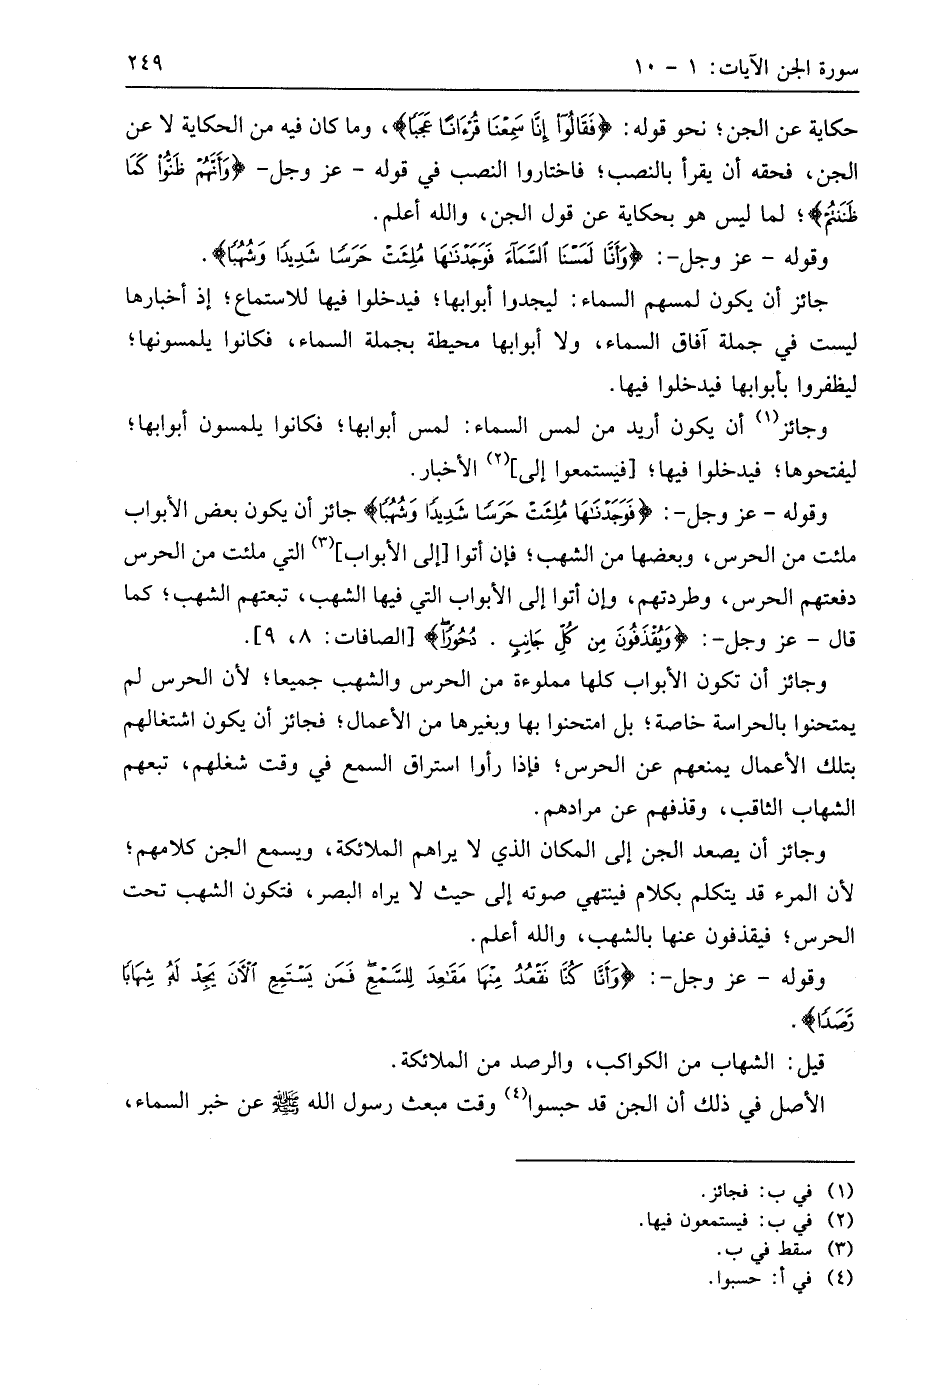 سورة الجن الآيات: ١ - ١٠ ٢٤٩
حكاية عن الجن؛ نحو قوله: ﴿فَقَالُوٓاْ إِنَّا سَمِعۡنَا قُرۡءَانًا عَجَبًا﴾، وما كان فيه من الحكاية لا عن
الجن، فحقه أن يقرأ بالنصب؛ فاختاروا النصب في قوله - عز وجل- ﴿وَأَنَّهُمۡ ظَنُّواْ كَمَا
ظَنَنتُمۡ﴾؛ لما ليس هو بحكاية عن قول الجن، والله أعلم.
وقوله - عز وجل-: ﴿وَأَنَّا لَمَسۡنَا ٱلسَّمَآءَ فَوَجَدۡنَٰهَا مُلِئَتۡ حَرَسٗا شَدِيدٗا وَشُهُبٗا﴾.
جائز أن يكون لمسهم السماء: ليجدوا أبوابها؛ فيدخلوا فيها للاستماع؛ إذ أخبارها
ليست في جملة آفاق السماء، ولا أبوابها محيطة بجملة السماء، فكانوا يلمسونها؛
ليظفروا بأبوابها فيدخلوا فيها.
وجائز(١) أن يكون أريد من لمس السماء: لمس أبوابها؛ فكانوا يلمسون أبوابها؛
ليفتحوها؛ فيدخلوا فيها؛ [فيستمعوا إلى](٢) الأخبار.
وقوله - عز وجل-: ﴿فَوَجَدۡنَٰهَا مُلِئَتۡ حَرَسٗا شَدِيدٗا وَشُهُبٗا﴾ جائز أن يكون بعض الأبواب
ملئت من الحرس، وبعضها من الشهب؛ فإن أتوا [إلى الأبواب](٣) التي ملئت من الحرس
دفعتهم الحرس، وطردتهم، وإن أتوا إلى الأبواب التي فيها الشهب، تبعتهم الشهب؛ كما
قال - عز وجل-: ﴿وَيُقۡذَفُونَ مِن كُلِّ جَانِبٖ . دُحُورٗاۖ﴾ [الصافات: ٨، ٩].
وجائز أن تكون الأبواب كلها مملوءة من الحرس والشهب جميعا؛ لأن الحرس لم
يمتحنوا بالحراسة خاصة؛ بل امتحنوا بها وبغيرها من الأعمال؛ فجائز أن يكون اشتغالهم
بتلك الأعمال يمنعهم عن الحرس؛ فإذا رأوا استراق السمع في وقت شغلهم، تبعهم
الشهاب الثاقب، وقذفهم عن مرادهم.
وجائز أن يصعد الجن إلى المكان الذي لا يراهم الملائكة، ويسمع الجن كلامهم؛
لأن المرء قد يتكلم بكلام فينتهي صوته إلى حيث لا يراه البصر، فتكون الشهب تحت
الحرس؛ فيقذفون عنها بالشهب، والله أعلم.
وقوله - عز وجل-: ﴿وَأَنَّا كُنَّا نَقۡعُدُ مِنۡهَا مَقَٰعِدَ لِلسَّمۡعِۖ فَمَن يَسۡتَمِعِ ٱلۡأٓنَ يَجِدۡ لَهُۥ شِهَابٗا
رَّصَدٗا﴾.
قيل: الشهاب من الكواكب، والرصد من الملائكة.
الأصل في ذلك أن الجن قد حبسوا(٤) وقت مبعث رسول الله ﷺ عن خبر السماء،
(١) في ب: فجائز.
(٢) في ب: فيستمعون فيها.
(٣) سقط في ب.
(٤) في أ: حسبوا.